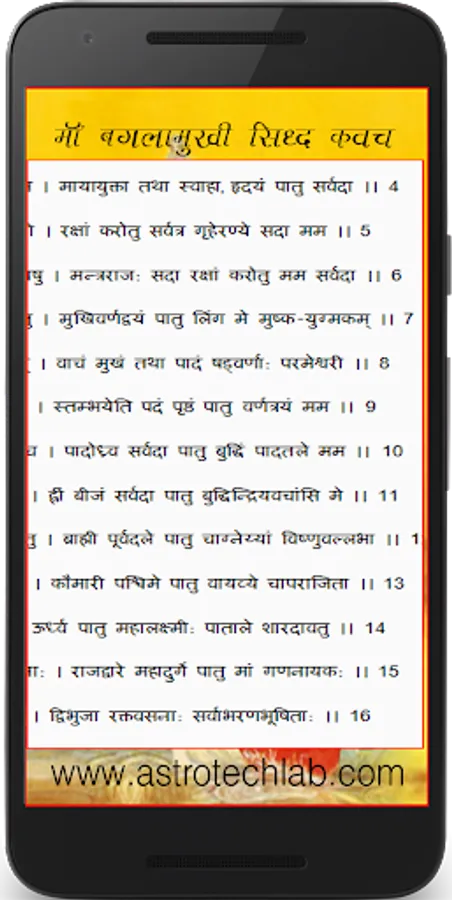 माँ बगलामुखी सिध्द कवच
। मायायुक्ता तथा स्वाहा, हृदयं पातु सर्वदा ।। 4
। रक्षां करोतु सर्वत्र गृहेरण्ये सदा मम ।। 5
षु । मन्त्रराजः सदा रक्षां करोतु मम सर्वदा ।। 6
। मुखिवर्णद्वयं पातु लिंग मे मुष्क-युग्मकम् ।। 7
। वाचं मुखं तथा पादं षड्वर्णाः परमेश्वरी ।। 8
। स्तम्भयेति पदं पृष्ठं पातु वर्णत्रयं मम ।। 9
। पादोध्र्व सर्वदा पातु बुद्धिं पादतले मम ।। 10
। ह्रीं बीजं सर्वदा पातु बुद्धिन्द्रियवचांसि मे ।। 11
। ब्राह्मी पूर्वदले पातु चाग्नेय्यां विष्णुवल्लभा ।। 1
। कौमारी पश्चिमे पातु वायव्ये चापराजिता ।। 13
ऊर्ध्वं पातु महालक्ष्मीः पाताले शारदावतु ।। 14
। राजद्वारे महादुर्गे पातु मां गणनायकः ।। 15
। द्विभुजा रक्तवसनाः सर्वाभरणभूषिताः ।। 16
www.astrotechlab.com